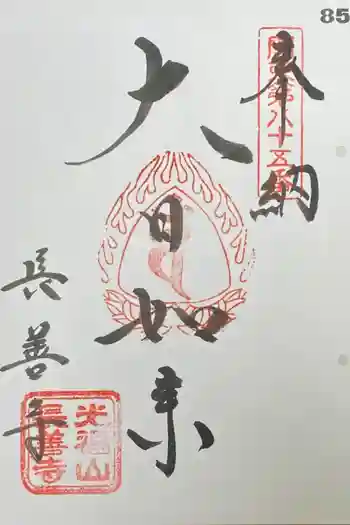 85
奉納
第八十五番
大日如来
長善寺
光福山
長善寺